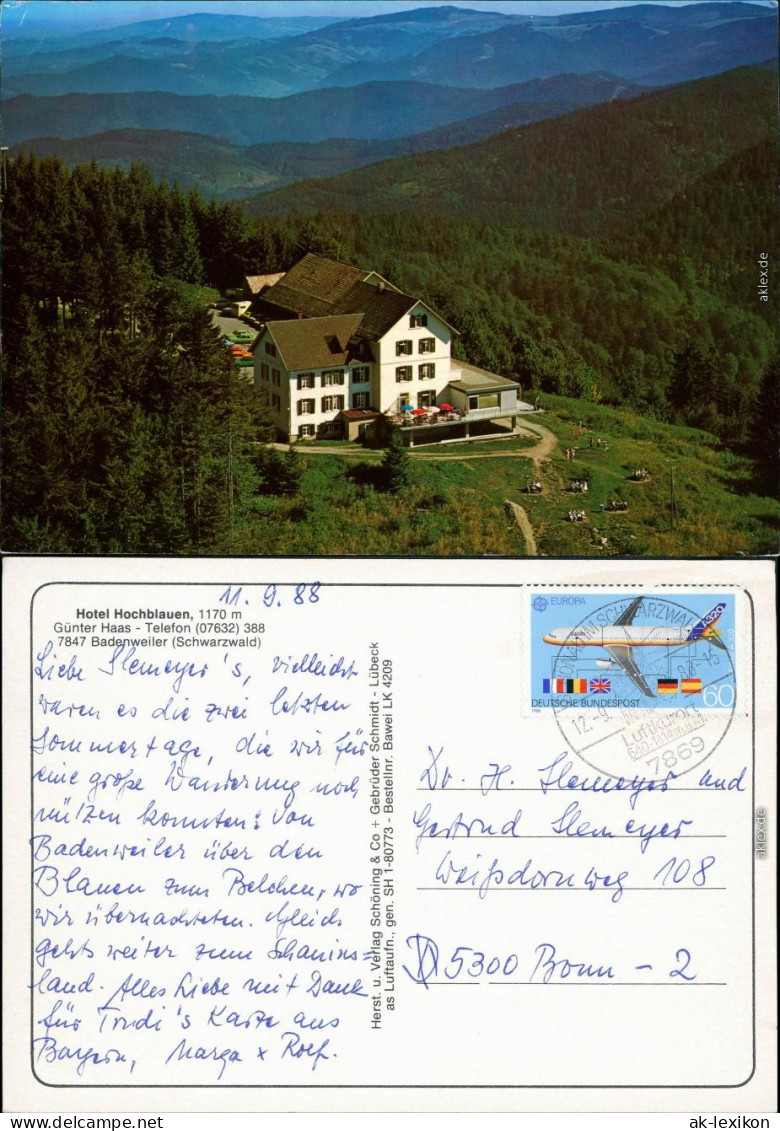 aklex.de
11.9.88
Hotel Hochblauen, 1170 m
Günter Haas - Telefon (07632) 388
7847 Badenweiler (Schwarzwald)
Liebe Slemeyer's, vielleicht
waren es die zwei letzten
Sommertage, die wir für
eine große Wanderung noch
nützen konnten: Von
Badenweiler über den
Blauen zum Belchen, wo
wir übernachteten. Gleich
gehts weiter zum Schauins=
land. Alles Liebe mit Dank
für Trudi's Karte aus
Bayern, Marga + Rolf.
Herst. u. Verlag Schöning & Co + Gebrüder Schmidt - Lübeck
as Luftaufn., gen. SH 1-80773 - Bestellnr. Bawei LK 4209
EUROPA
A320
DEUTSCHE BUNDESPOST
60
SCHWARZWALD
12.-9.
Luftkurort
7869
Dr. H. Slemeyer und
Gertrud Slemeyer
Weißdornweg 108
5300 Bonn - 2
aklex.de
www.ak-lexikon.de
ak-lexikon.com